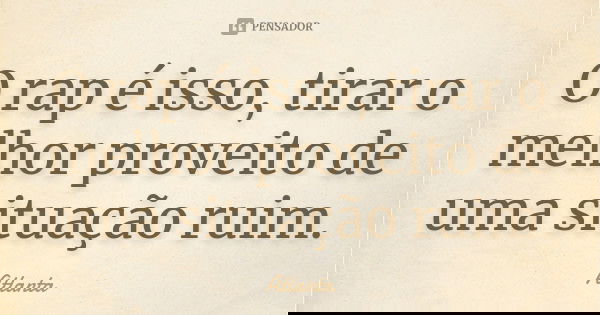 PENSADOR
O rap é isso, tirar o
melhor proveito de
uma situação ruim.
Atlanta